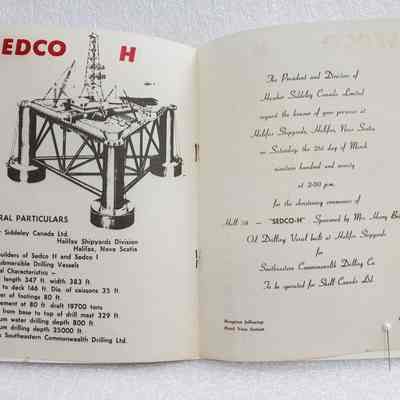 SEDCO H
RAL PARTICULARS
Siddeley Canada Ltd.
Halifax Shipyards Division
Halifax, Nova Scotia
uilders of Sedco H and Sedco I
ubmersible Drilling Vessels
al Characteristics -
length 347 ft. width 383 ft.
to deck 146 ft. Dia. of caissons 35 ft.
er of footings 80 ft.
cement at 80 ft. draft 19700 tons
from base to top of drill mast 329 ft.
um water drilling depth 800 ft.
um drilling depth 25000 ft.
Southeastern Commonwealth Drilling Ltd.
The President and Directors of
Hawker Siddeley Canada Limited
request the honour of your presence at
Halifax Shipyards, Halifax, Nova Scotia
on Saturday, the 21st day of March
nineteen hundred and seventy
at 2:00 p.m.
for the christening ceremonies of
Hull "SEDCO-H" Sponsored by Mrs. Harry
Oil Drilling Vessel built at Halifax Shipyards
for
Southeastern Commonwealth Drilling Co.
To be operated for Shell Canada Ltd.
Reception following
Hotel Nova Scotian